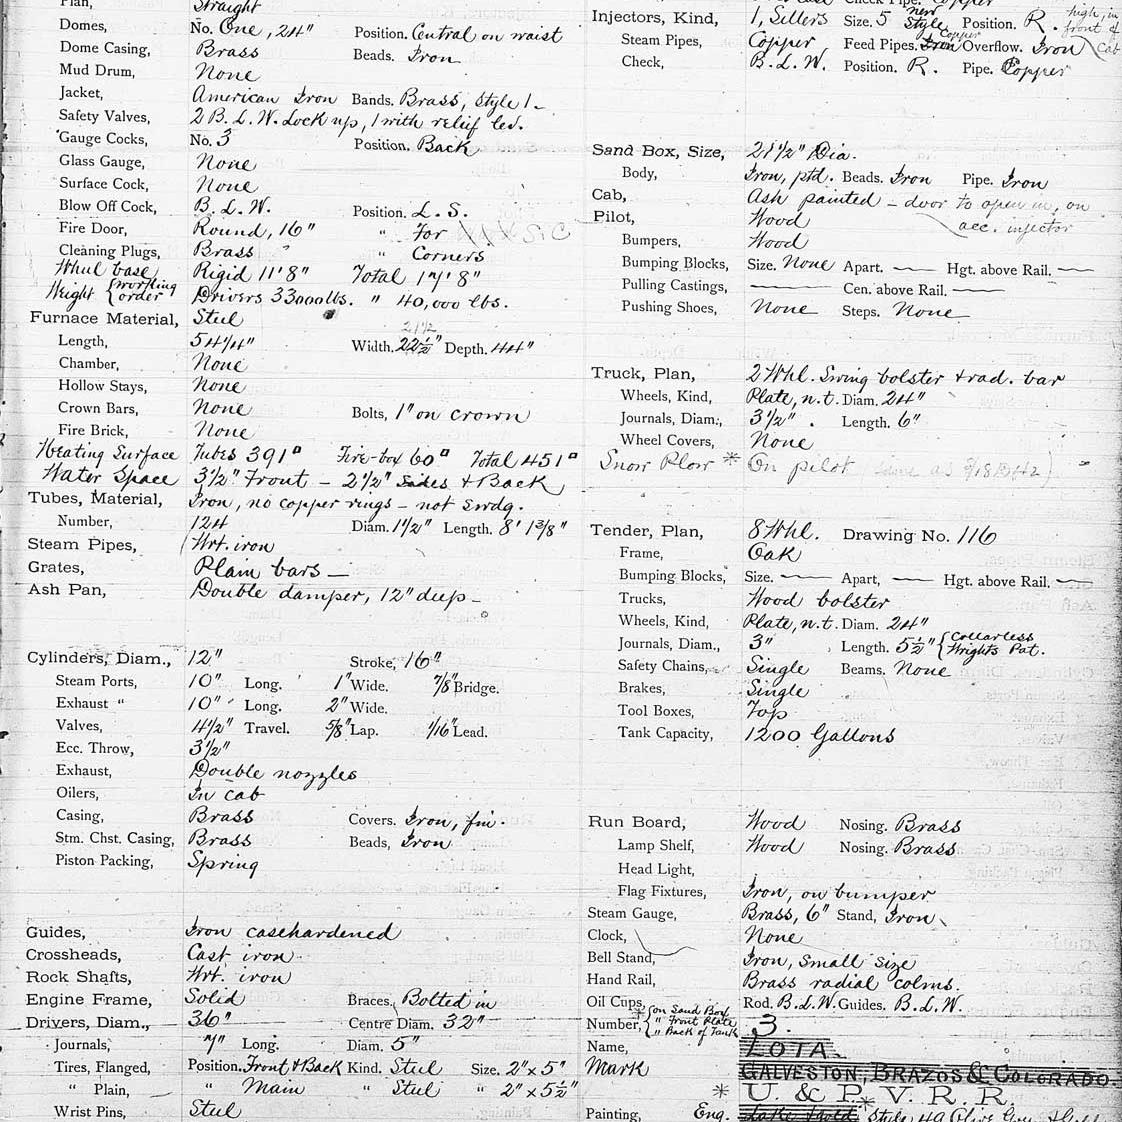 Plan, Straight
Domes, No. One, 24" Position. Central on waist
Dome Casing, Brass Beads. Iron
Mud Drum, None
Jacket, American Iron Bands. Brass, Style 1.
Safety Valves, 2 B.L.W. Lock up, 1 with relief lev.
Gauge Cocks, No. 3 Position. Back
Glass Gauge, None
Surface Cock, None
Blow Off Cock, B.L.W. Position. L.S.
Fire Door, Round, 16" " For
Cleaning Plugs, Brass " Corners
Whul base Rigid 11'8" Total 17'8"
Weight { working order Drivers 33000 lbs. " 40,000 lbs.
Furnace Material, Steel
21 1/2
Length, 54 1/4" Width. 22 1/2" Depth. 44"
Chamber, None
Hollow Stays, None
Crown Bars, None Bolts, 1" on crown
Fire Brick, None
Heating Surface Tubes 391▫ Fire-box 60▫ Total 451▫
Water Space 3 1/2" Front – 2 1/2" Sides & Back
Tubes, Material, Iron, no copper rings – not swdg.
Number, 124 Diam. 1 1/2" Length. 8' 1 3/8"
Steam Pipes, Wrt. iron
Grates, Plain bars —
Ash Pan, Double damper, 12" deep –
Cylinders, Diam., 12" Stroke, 16"
Steam Ports, 10" Long. 1" Wide. 7/8" Bridge.
Exhaust " 10" Long. 2" Wide.
Valves, 4 1/2" Travel. 5/8" Lap. 1/16" Lead.
Ecc. Throw, 3 1/2"
Exhaust, Double nozzles
Oilers, In cab
Casing, Brass Covers. Iron, fin.
Stm. Chst. Casing, Brass Beads, Iron
Piston Packing, Spring
Guides, Iron casehardened
Crossheads, Cast iron
Rock Shafts, Wrt. iron
Engine Frame, Solid Braces. Bolted in
Drivers, Diam., 36" Centre Diam. 32"
Journals, 7" Long. Diam. 5"
Tires, Flanged, Position. Front & Back Kind. Steel Size. 2" x 5"
" Plain, " Main " Steel " 2" x 5 1/2"
Wrist Pins, Steel
Injectors, Kind, 1, Sellers Size. 5 new Style Position. R. high, in front of cab
Steam Pipes, Copper Feed Pipes. Iron Copper Overflow. Iron
Check, B.L.W. Position. R. Pipe. Copper
Sand Box, Size, 21 1/2" Dia.
Body, Iron, ptd. Beads. Iron Pipe. Iron
Cab, Ash painted – door to open in, on acc. injector
Pilot, Wood
Bumpers, Wood
Bumping Blocks, Size. None Apart. — Hgt. above Rail. —
Pulling Castings, — Cen. above Rail. —
Pushing Shoes, None Steps. None
Truck, Plan, 2 Whl. Swing bolster & rad. bar
Wheels, Kind, Plate, n.t. Diam. 24"
Journals, Diam., 3 1/2" Length. 6"
Wheel Covers, None
Snow Plow * On pilot
Tender, Plan, 8 Whl. Drawing No. 116
Frame, Oak
Bumping Blocks, Size. — Apart, — Hgt. above Rail. —
Trucks, Wood bolster
Wheels, Kind, Plate, n.t. Diam. 24"
Journals, Diam., 3" Length. 5 1/2" { Collarless Wrights Pat.
Safety Chains, Single Beams. None
Brakes, Single
Tool Boxes, Top
Tank Capacity, 1200 Gallons
Run Board, Wood Nosing. Brass
Lamp Shelf, Wood Nosing. Brass
Head Light,
Flag Fixtures, Iron, on bumper
Steam Gauge, Brass, 6" Stand, Iron
Clock, None
Bell Stand, Iron, small size
Hand Rail, Brass radial colms.
Oil Cups, Rod. B.L.W. Guides. B.L.W.
Number, * { on Sand Box " Front Plate " Back of Tank 3.
Name, LOTA.
Mark GALVESTON, BRAZOS & COLORADO.
* U. & P. V. R. R.
Painting, Eng. * Style 49 Olive Grn